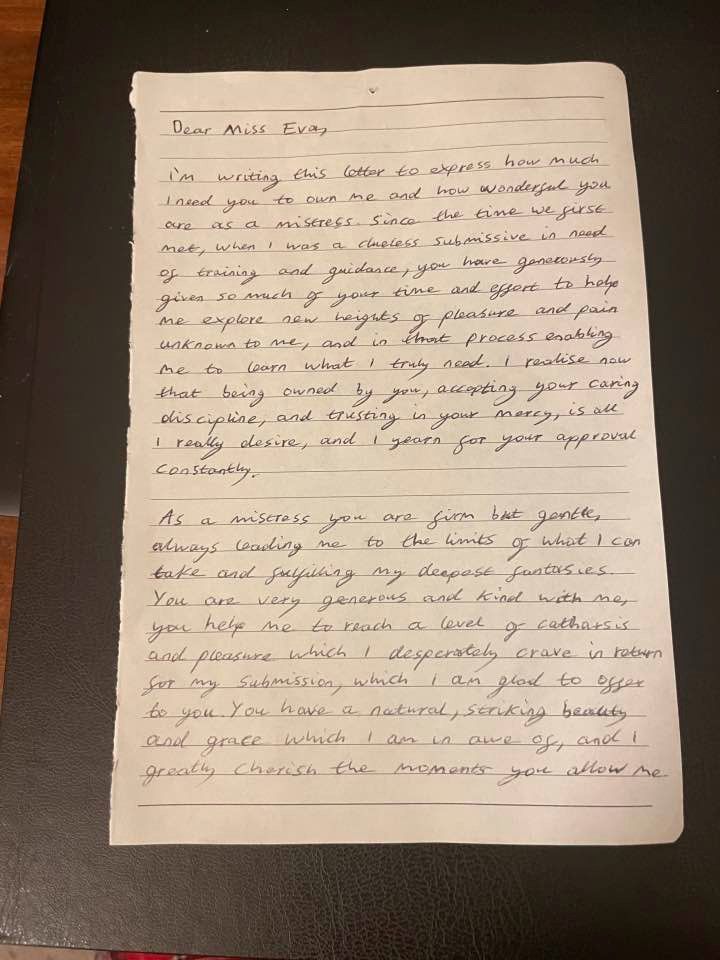 Dear Miss Eva,
I'm writing this letter to express how much
I need you to own me and how wonderful you
are as a mistress. Since the time we first
met, when I was a clueless submissive in need
of training and guidance, you have generously
given so much of your time and effort to help
me explore new heights of pleasure and pain
unknown to me, and in that process enabling
me to learn what I truly need. I realise now
that being owned by you, accepting your caring
discipline, and trusting in your mercy, is all
I really desire, and I yearn for your approval
constantly.
As a mistress you are firm but gentle,
always leading me to the limits of what I can
take and fulfilling my deepest fantasies.
You are very generous and kind with me,
you help me to reach a level of catharsis
and pleasure which I desperately crave in return
for my submission, which I am glad to offer
to you. You have a natural, striking beauty
and grace which I am in awe of, and I
greatly cherish the moments you allow me